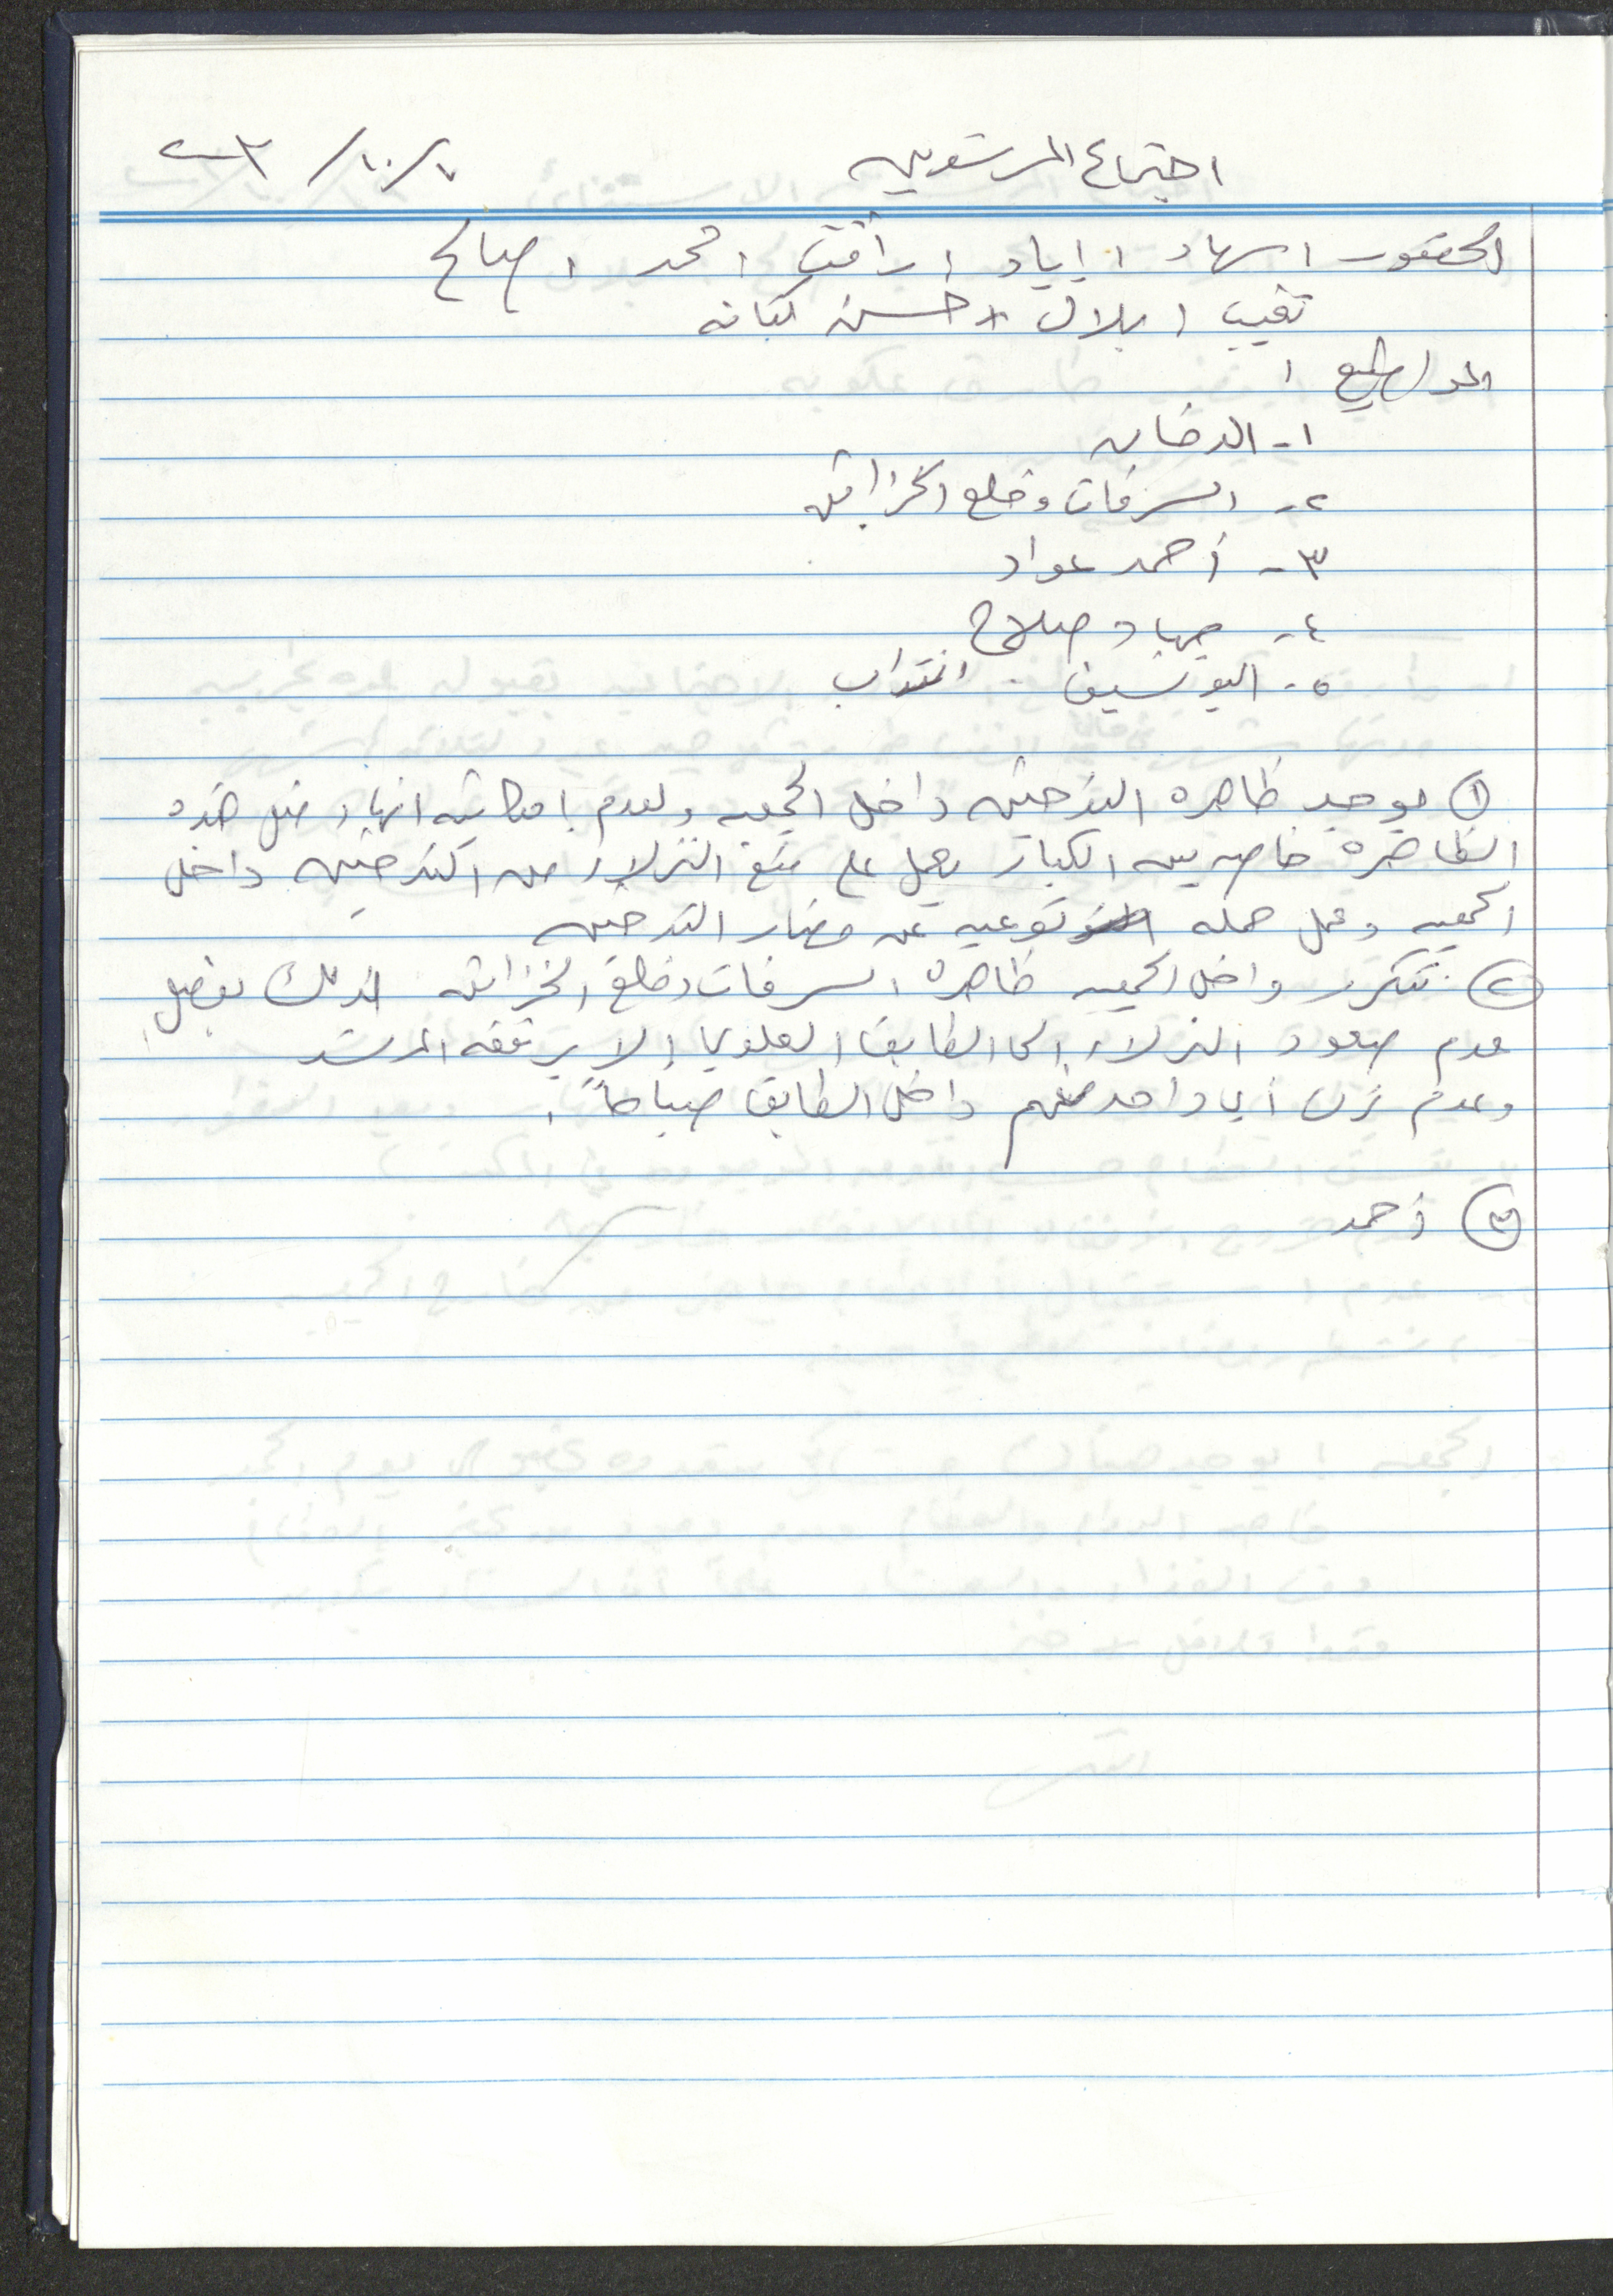 اجتماع المرشدين ٧/١٠/٢٠٠٣
الحضور : سهاد ، اياد ، رأفت ، محمد ، صالح
نقيب ، بلال ، حسن كتانه
المواضيع :
١- الدخان
٢- السرقات وخلع الخزائن
٣- أحمد عواد
٤- جهاد صلاح
٥- اليونسيف انتداب
① يوجد ظاهره التدخين داخل الجمعيه ولعدم امكانية انهاء مثل هذه
الظاهرة خاصه بين الكبار يعمل على منع النزلاء من التدخين داخل
الجمعيه وعمل حمله توعيه عن مضار التدخين
② تتكرر داخل الجمعيه ظاهرة السرقات وخلع الخزائن لذلك يفضل
عدم صعود النزلاء الى الطابق العلوي إلا برفقه المرشد
وعدم ترك أي واحد منهم داخل الطابق صباحاً .
③ أحمد